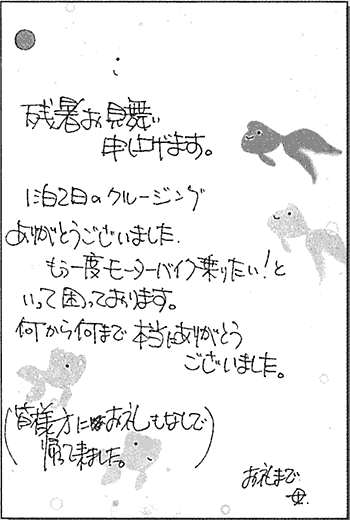 残暑お見舞い
申し上げます。
1泊2日のクルージング
ありがとうございました.
もう一度モーターバイク乗りたい!と
いって困っております。
何から何まで本当にありがとう
ございました。
(皆様方にはお礼もなしで
帰って来ました。)
お礼まで